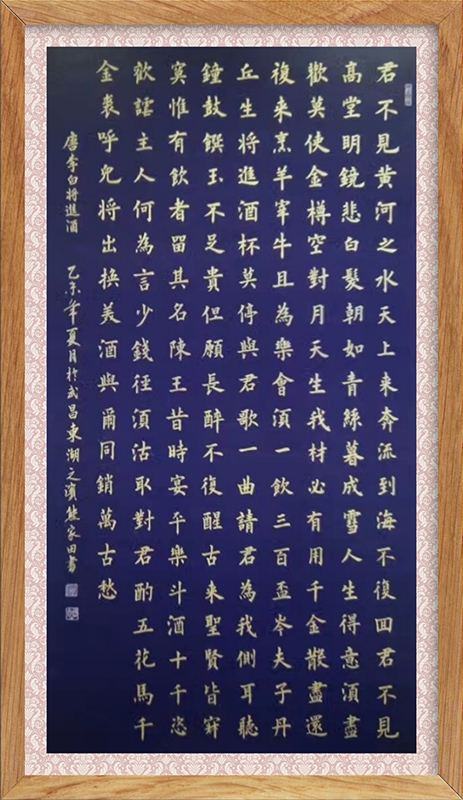 君不見黃河之水天上来奔流到海不復囬君不見
高堂明鏡悲白髮朝如青絲暮成雪人生得意湏盡
歡莫使金樽空對月天生我材必有用千金散盡還
復来烹羊宰牛且為樂會湏一飲三百盃岑夫子丹
丘生将進酒杯莫停與君歌一曲請君為我側耳聽
鐘鼓饌玉不足貴但願長醉不復醒古来聖賢皆寂
寞惟有飲者留其名陳王昔時宴平樂斗酒十千恣
歡謔主人何為言少錢徑湏沽取對君酌五花馬千
金裘呼兒将出換美酒與爾同銷萬古愁
唐李白将進酒 乙未年夏月於武昌東湖之濱熊家田書